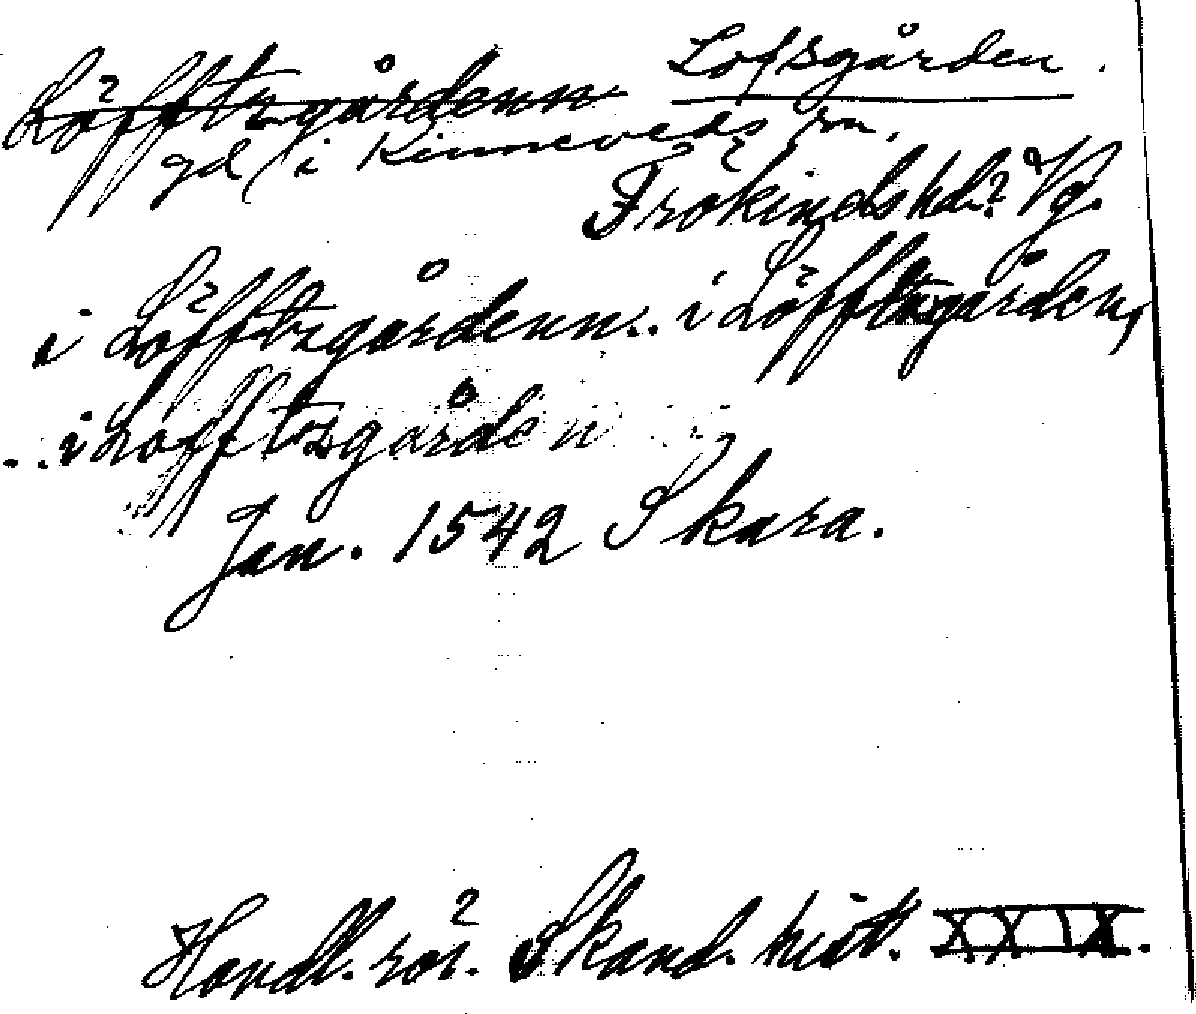 Löfftzgårdenn Lofsgården.
gd i Kinneveds sn,
Frökinds hd? Vg.
i Löfftzgårdenn.. i Löfftzgården,
..i Lofftzgården
Jan. 1542 Skara.
Handl. rör. Skand. hist. XXIX.